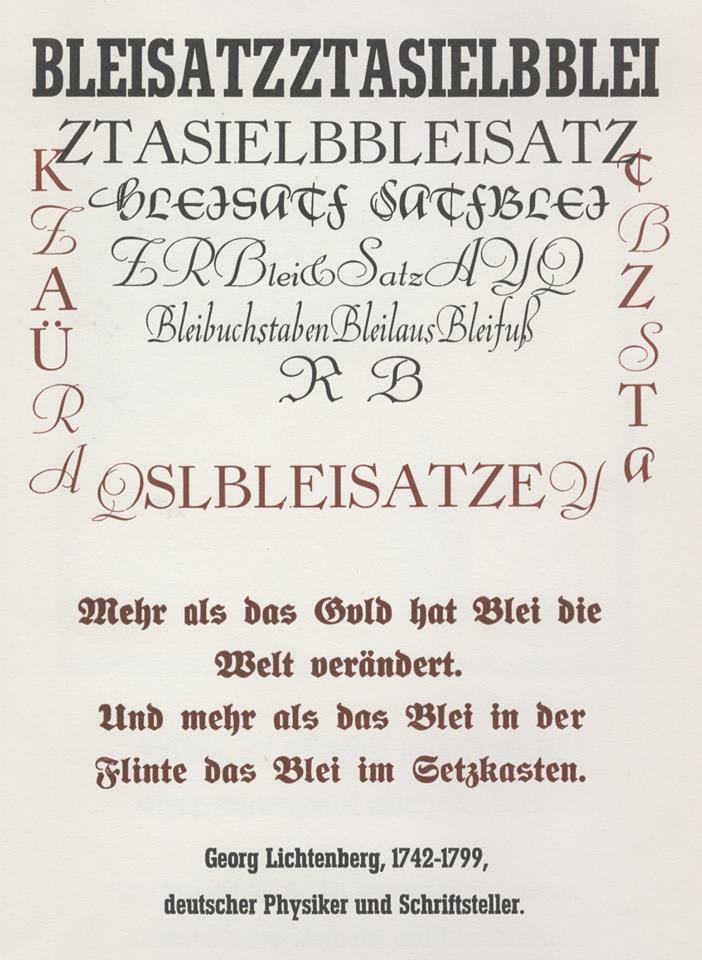 BLEISATZZTASIELBBLEI
ZTASIELBBLEISATZ
BLEISATZ SATZBLEI
ZRBlei&SatzAYQ
BleibuchstabenBleilausBleifuß
R B
K
Z
A
Ü
R
A
T
B
Z
S
T
a
QSLBLEISATZEY
Mehr als das Gold hat Blei die
Welt verändert.
Und mehr als das Blei in der
Flinte das Blei im Setzkasten.
Georg Lichtenberg, 1742-1799,
deutscher Physiker und Schriftsteller.